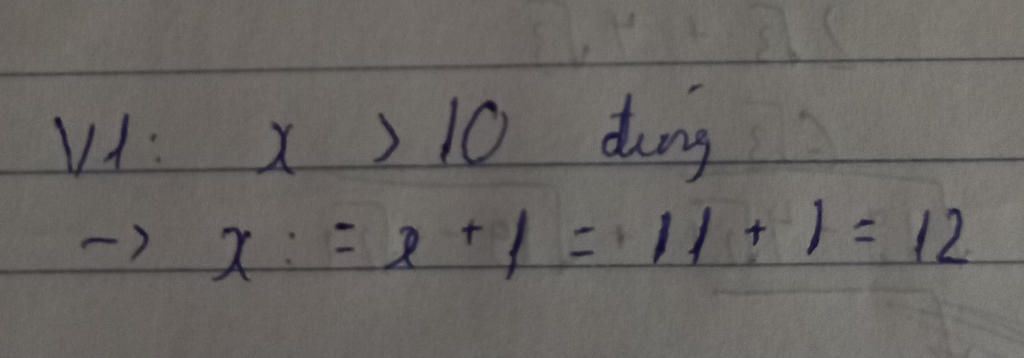 V1: x > 10 đúng
-> x := x + 1 = 11 + 1 = 12